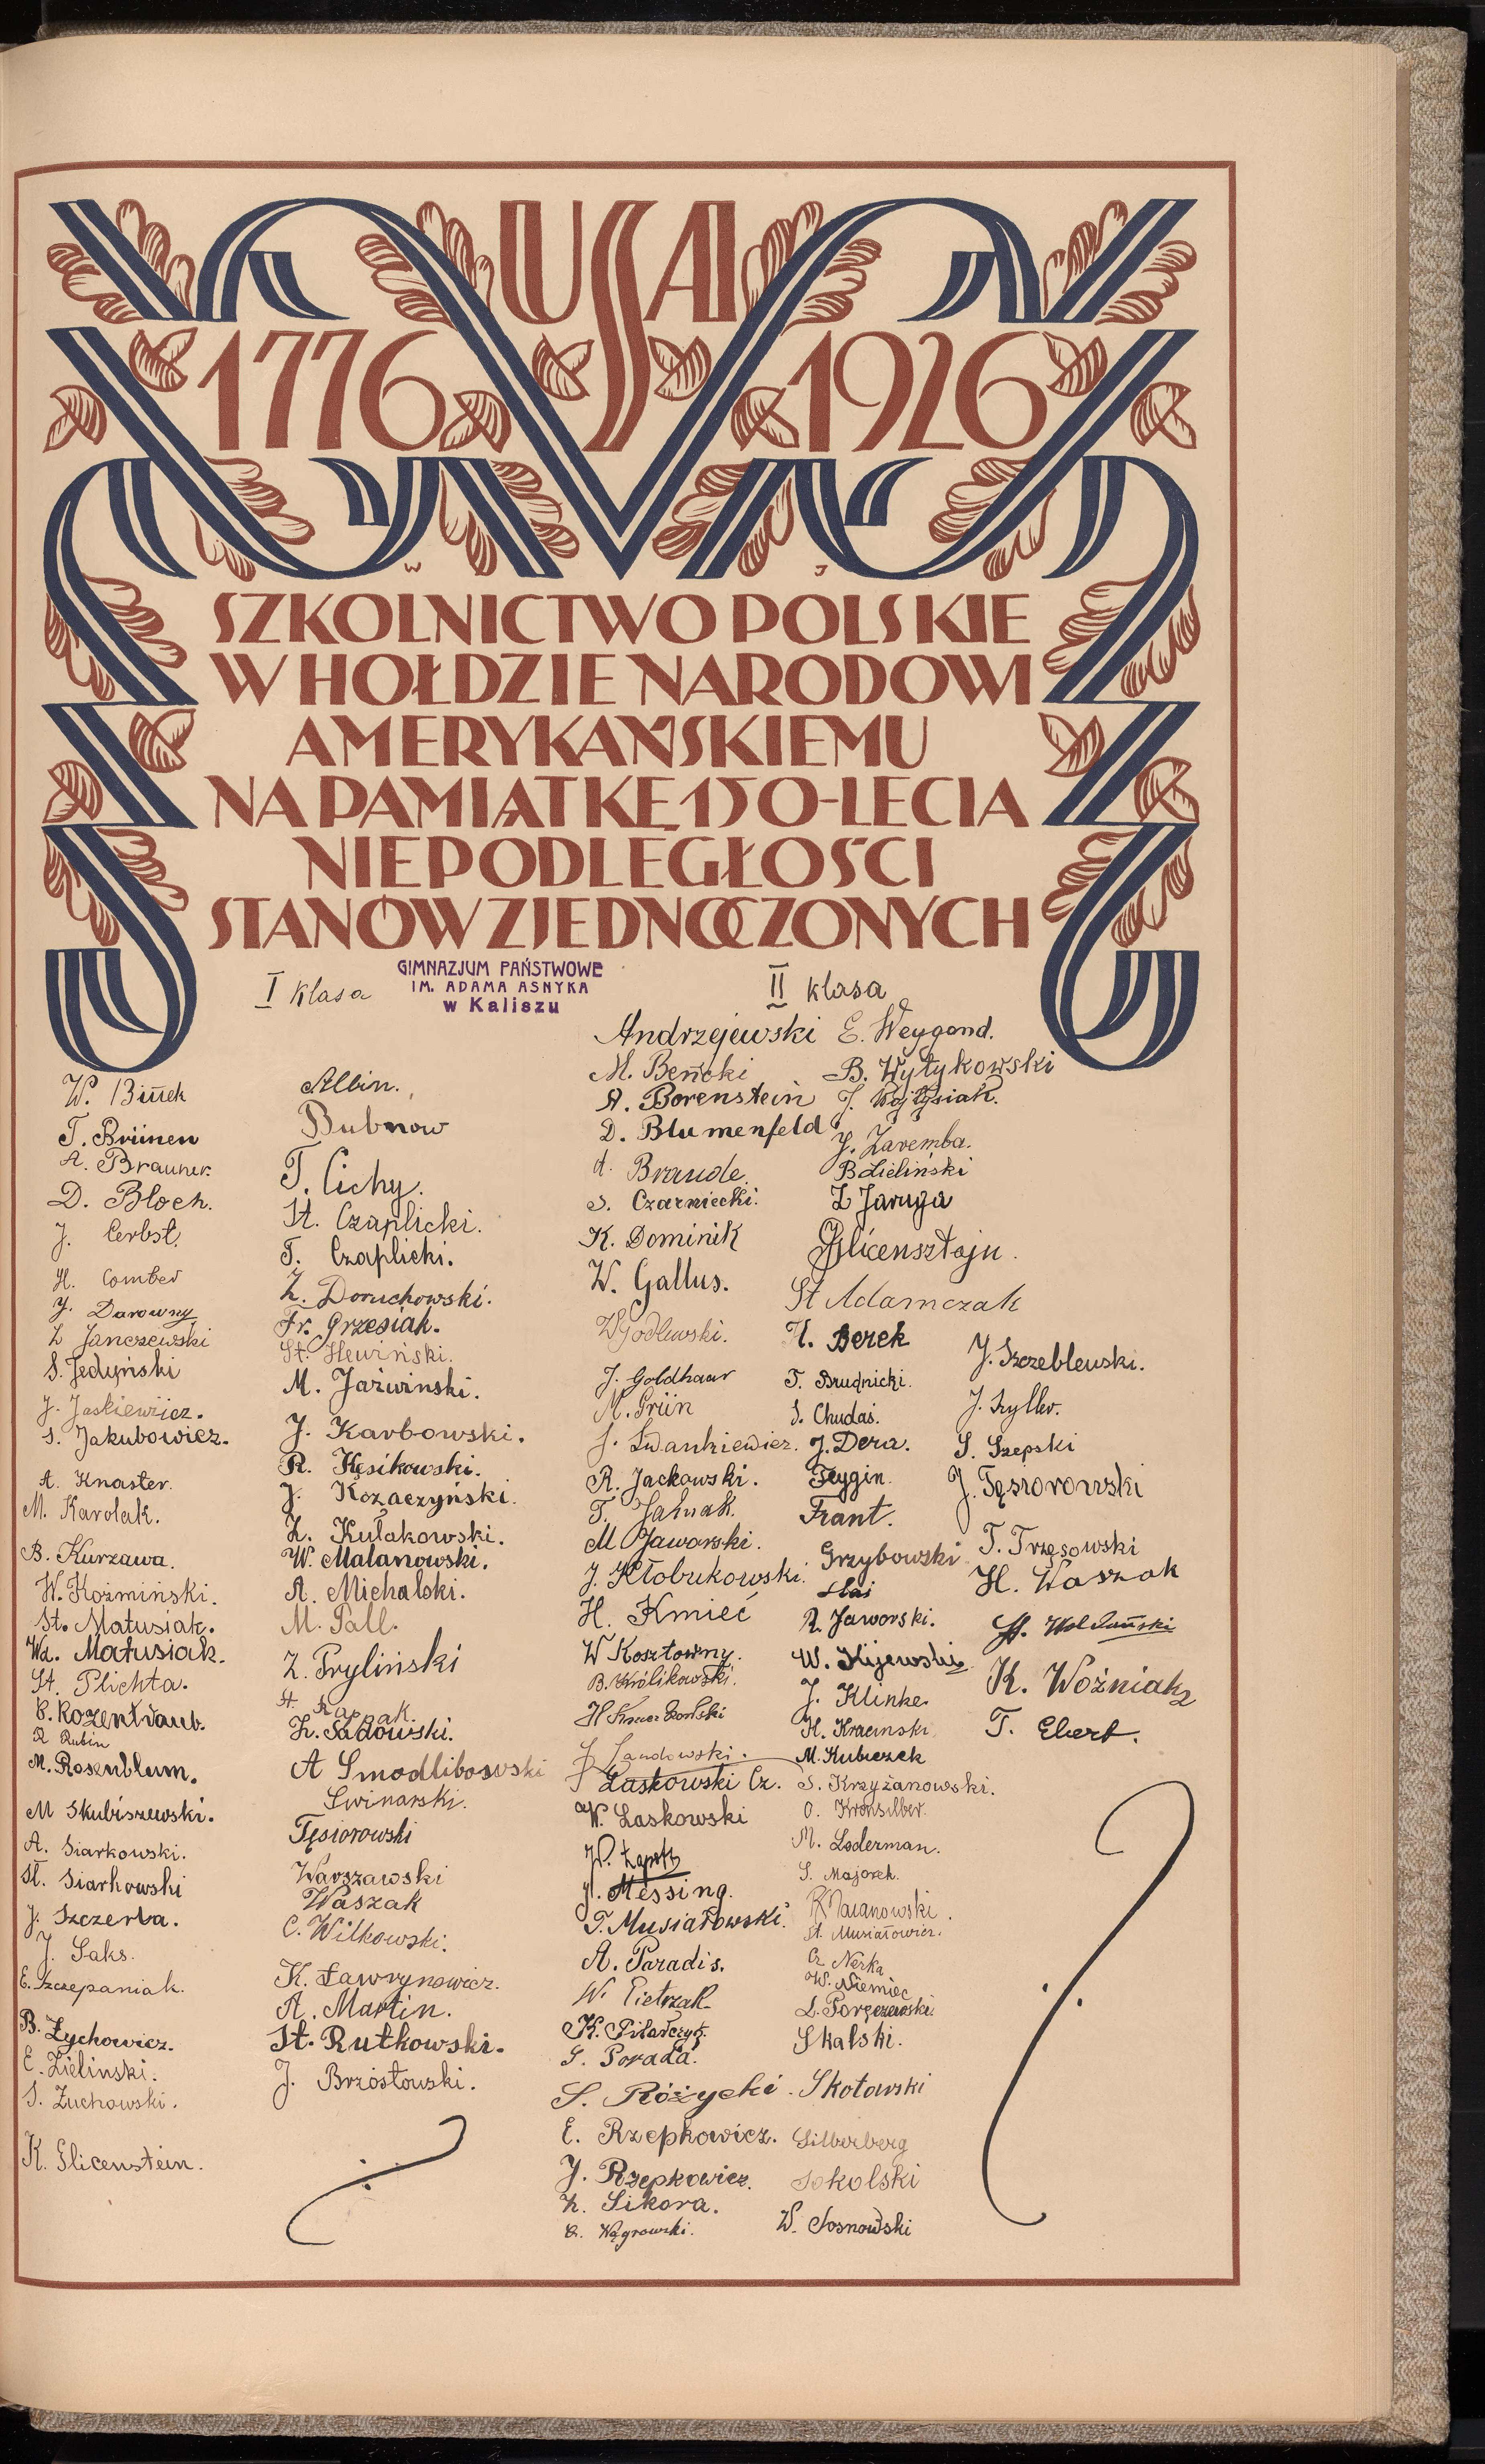 USA
1776 1926
W J
SZKOLNICTWO POLSKIE
W HOŁDZIE NARODOWI
AMERYKAŃSKIEMU
NA PAMIĄTKĘ 150-LECIA
NIEPODLEGŁOŚCI
STANÓW ZJEDNOCZONYCH
GIMNAZJUM PAŃSTWOWE
IM. ADAMA ASNYKA
w Kaliszu
I klasa
W. Binek
T. Brünen
A. Brauner
D. Bloch.
J. Cerbst.
H. Comber
J. Darowny
Z Janczewski
S. Jedyński
J. Jaskiewicz.
S. Jakubowicz.
A. Knaster.
M. Karolak.
B. Kurzawa.
W. Koźmiński.
St. Matusiak.
Wł. Matusiak.
St. Plichta.
B. Rozentraub.
R Rubin
M. Rosenblum.
M Skubiszewski.
A. Siarkowski.
St. Siarkowski
J. Szczerba.
J. Saks.
E. Szczepaniak.
B. Zychowicz.
E. Zieliński.
S. Żuchowski.
K. Glicenstein.
Albin.
Bubnow
T. Cichy.
St. Czaplicki.
T. Czaplicki.
Z. Doruchowski.
Fr. Grzesiak.
St. Hewiński.
M. Jaźwinski.
J. Karbowski.
R. Kęsikowski.
J. Kozaczyński.
Z. Kułakowski.
W. Malanowski.
A. Michalski.
M. Pall.
Z. Pryliński
St. Rapnak.
Z. Sadowski.
A Smodlibowski
Swinarski.
Tęsiorowski
Warszawski
Waszak
C. Wilkowski.
K. Ławrynowicz.
A. Martin.
St. Rutkowski.
J. Brzostowski.
II klasa
Andrzejewski
M. Beńcki
A. Borenstein
D. Blumenfeld
A. Braude.
S. Czarniecki.
K. Dominik
W. Gallus.
W Godlewski.
J. Goldhaar
M. Grün
J. Iwankiewicz.
R. Jackowski.
T. Jahnak.
M Jaworski.
J. Kłobukowski.
H. Kmieć
W Kosztowny.
B. Królikowski.
J. Landowski.
Laskowski Cz.
W. Laskowski
J. Messing.
T. Musiałowski.
A. Paradis.
W. Pietrzak
K. Pilarczyk.
G. Porada.
S. Różycki.
E. Rzepkowicz.
J. Rzepkowicz.
Z. Sikora.
C. Wągrowski.
E. Weygand.
B. Wytykowski
J. Wojtysiak.
J. Zaremba.
B Zieliński
Z Jaruga
Glicensztajn.
St Adamczak
H. Berek
T. Brudnicki.
S. Chudaś.
J. Dera.
Feygin.
Frant.
Grzybowski
Haś
R. Jaworski.
W. Kijewski
J. Klinke.
H. Kracinski
M. Kubiczek
S. Krzyżanowski.
O. Kronsilber.
M. Loderman.
S. Majorek.
R Maranowski.
St. Musiałowicz.
Cz Nerka
W. Niemiec
L. Porczewski.
Skalski.
Skotawski
Silberberg
Sokolski
W. Sosnowski
J. Szczeblewski.
J. Szyller.
S. Szepski
J. Tęsiorowski
T. Trzęsowski
H. Waszak
K. Woźniak
T. Ebert.